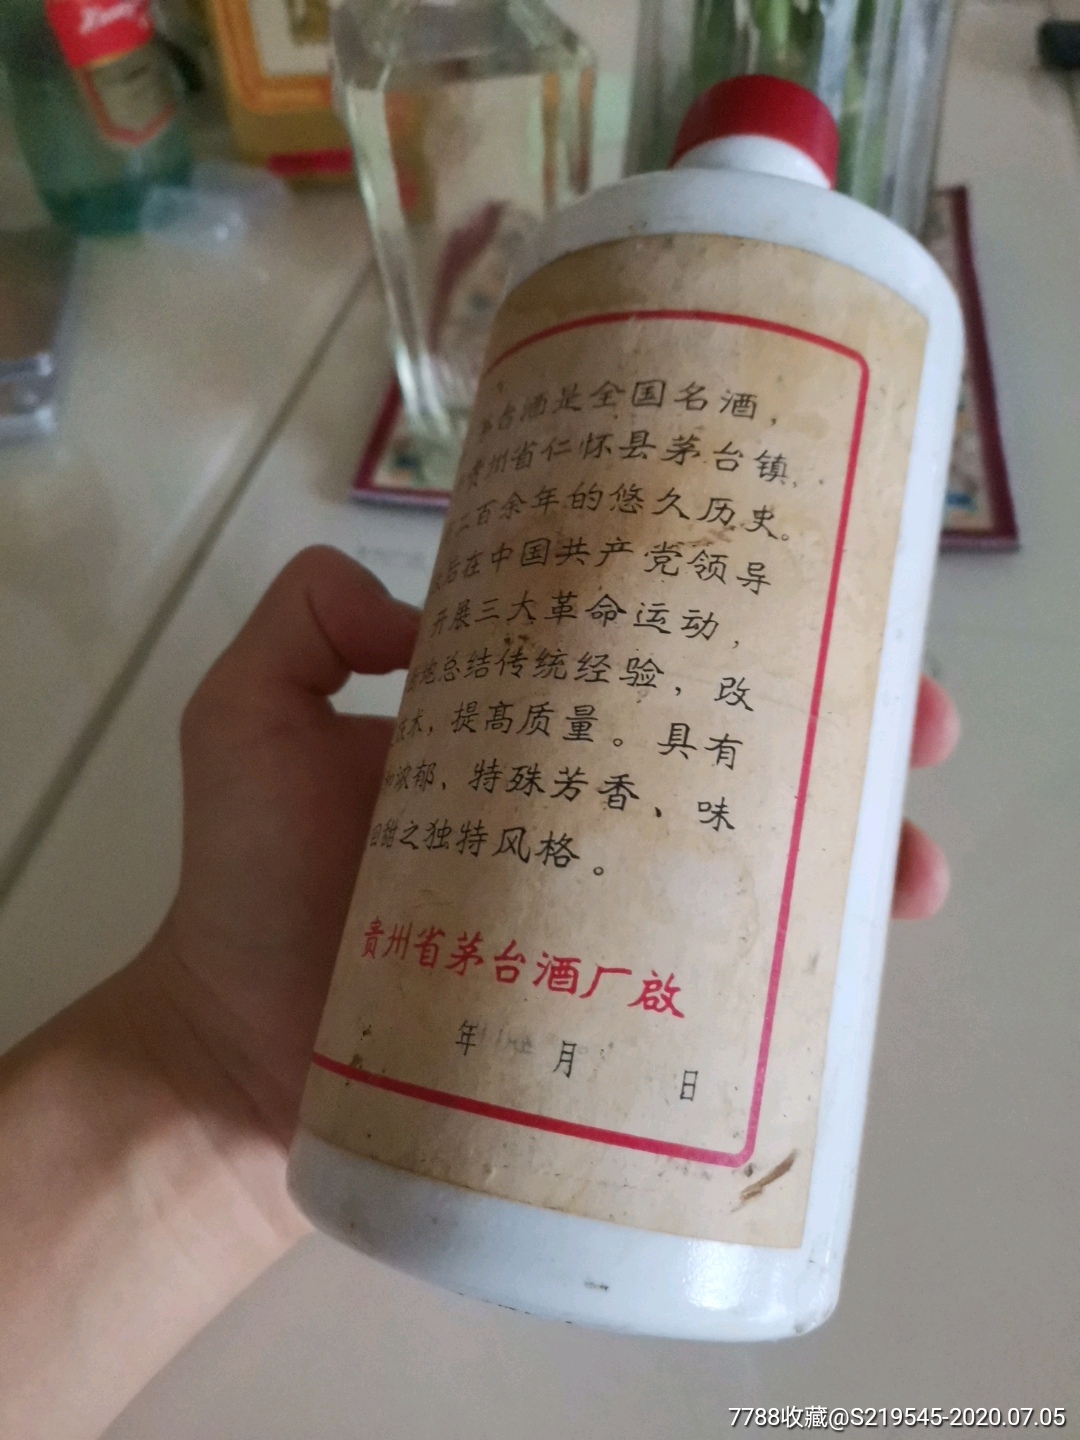 台酒是全国名酒，
贵州省仁怀县茅台镇，
二百余年的悠久历史。
后在中国共产党领导
开展三大革命运动，
总结传统经验，改
技术，提高质量。具有
浓郁、特殊芳香、味
回甜之独特风格。
贵州省茅台酒厂啟
年 月 日
7788收藏@S219545-2020.07.05